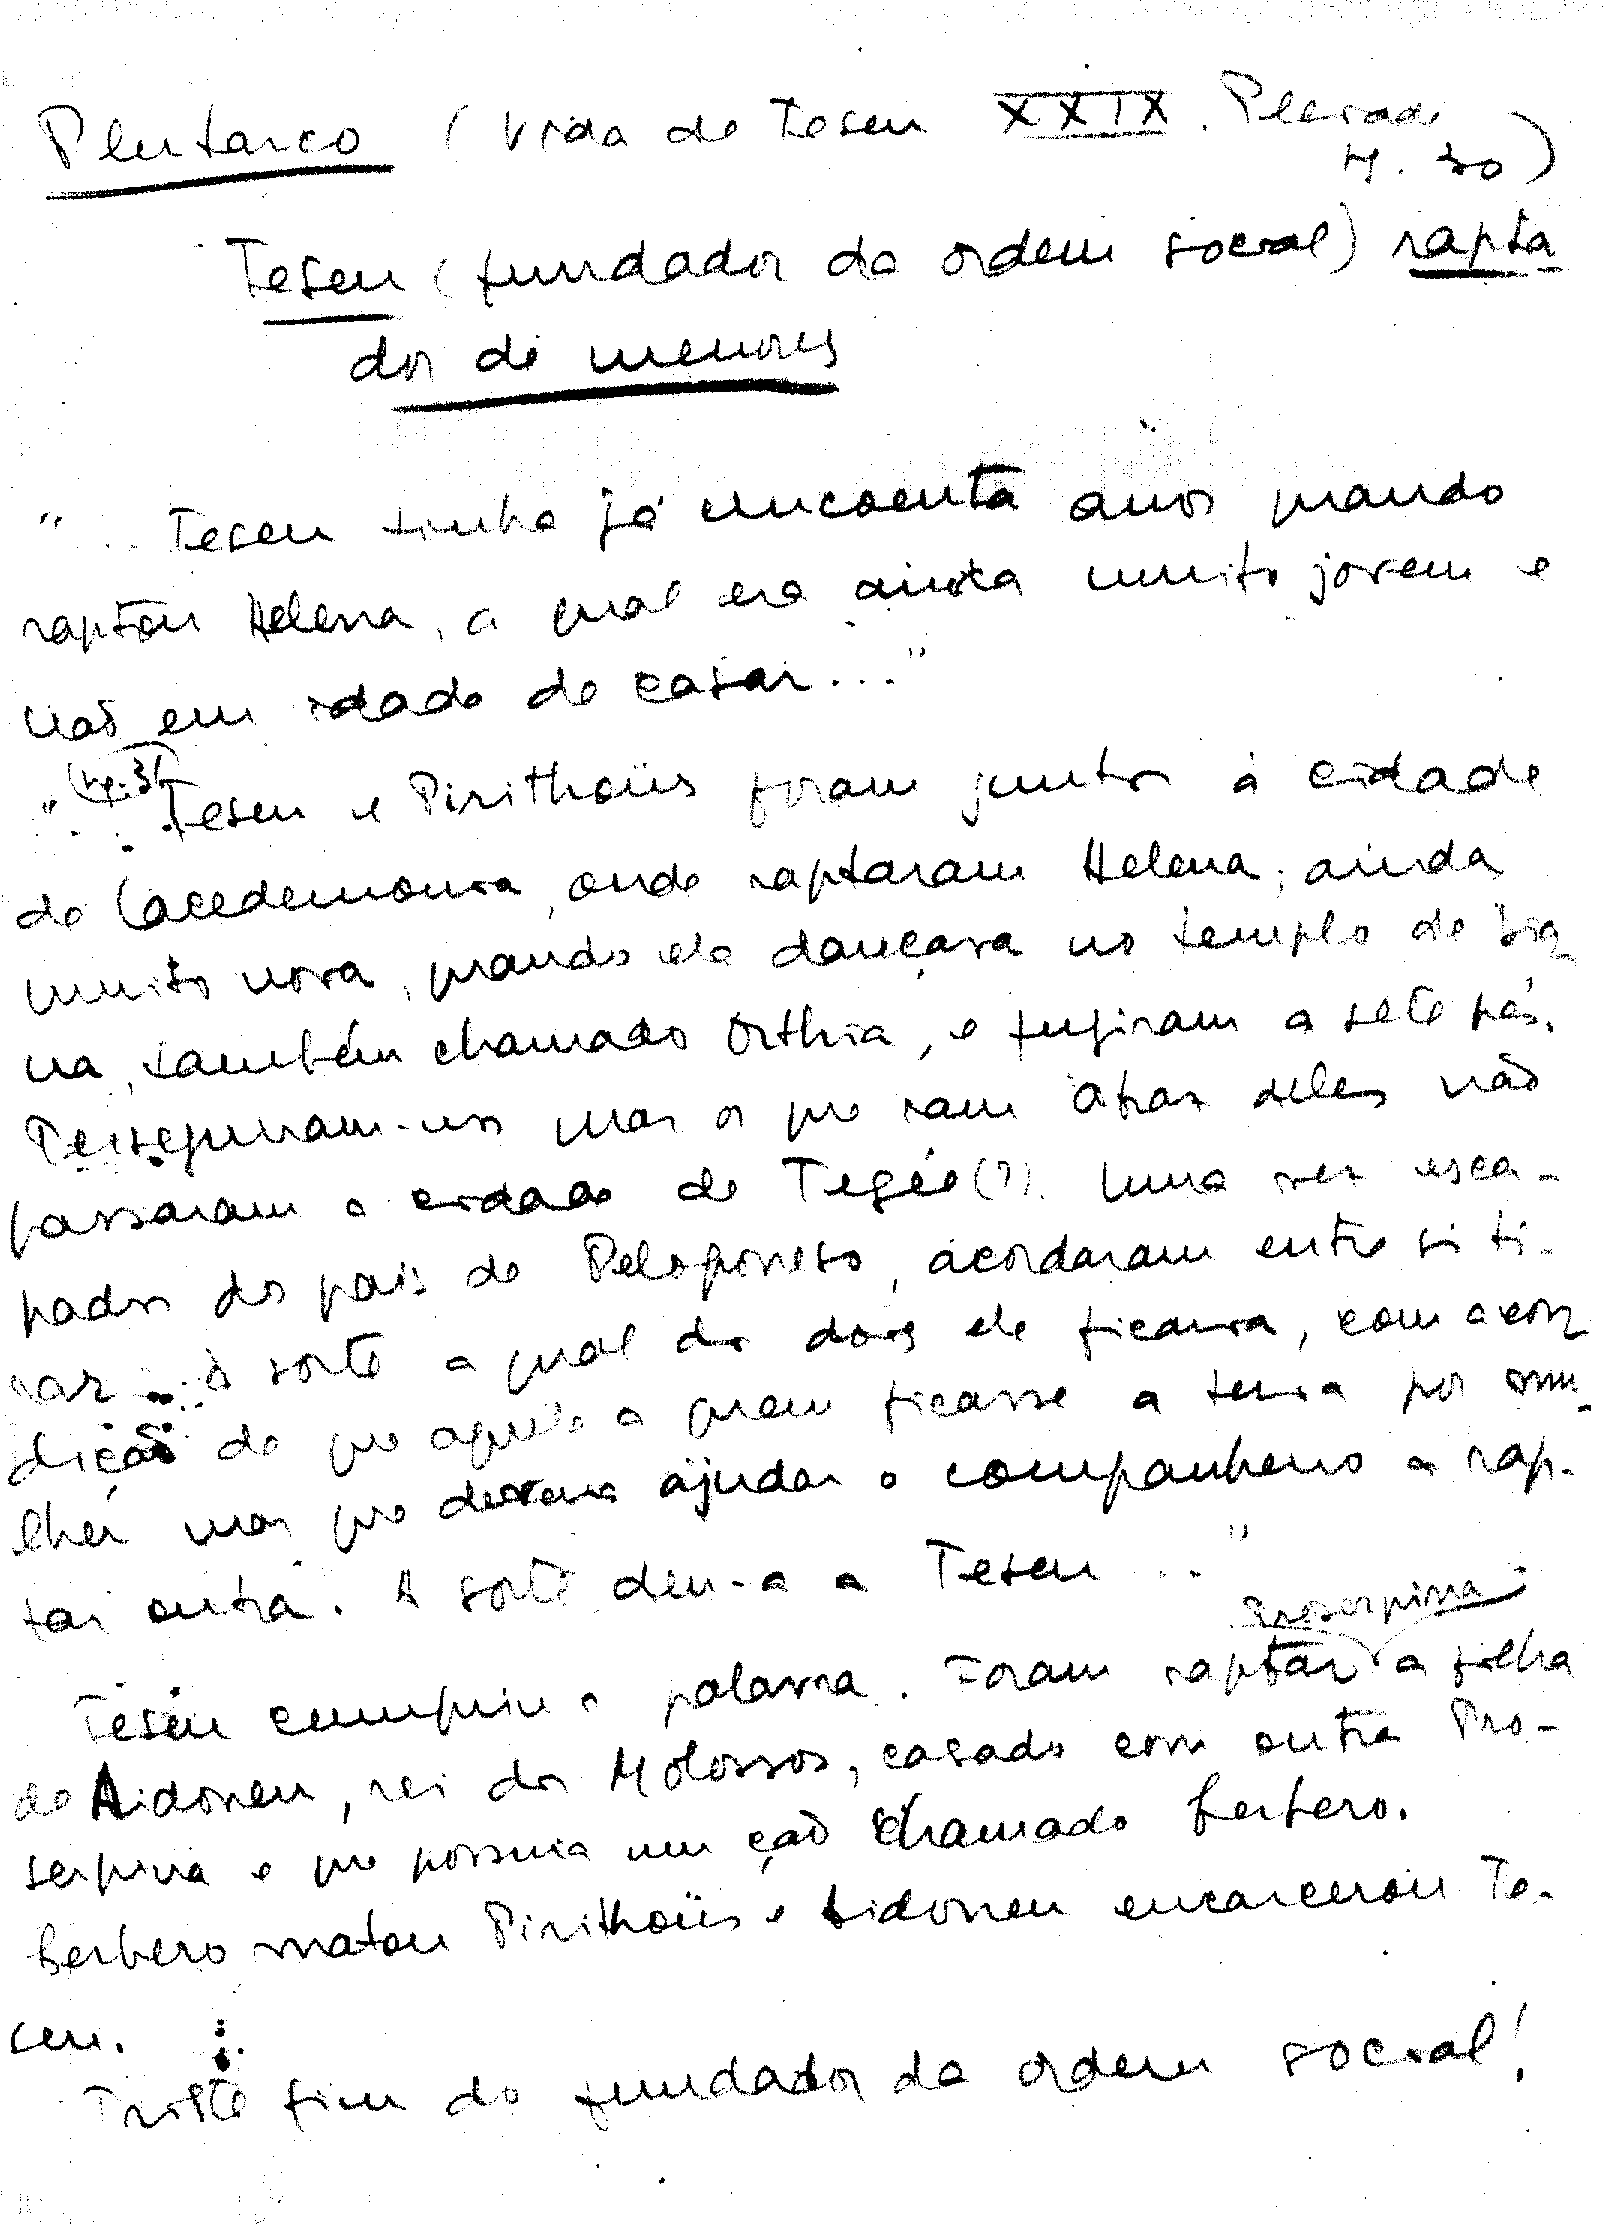 Plutarco (Vida de Teseu XXIX. Pleiade
p. 30)
Teseu (fundador da ordem social) rapta
dor de menores
"... Teseu tinha já cincoenta anos quando
raptou Helena, a qual era ainda muito jovem e
não em idade de casar..."
(p. 31)
"... Teseu e Pirithoüs foram juntos à cidade
de Lacedemonia, onde raptaram Helena, ainda
muito nova, quando ela dançava no templo de Dia
na, também chamado Orthia, e fugiram a sete pés.
Perseguiram-nos mas os que iam atrás deles não
passaram a cidade de Tegée(?). Uma vez esca-
pados do país de Peloponeso, acordaram entre si ti-
rar à sorte a qual dos dois ele ficaria, com a con
dição de que aquele a quem ficasse a teria por mu-
lher mas que deveria ajudar o companheiro a rap-
tar outra. A sorte deu-a a Teseu ..."
Proserpina
Teseu cumpriu a palavra. Foram raptar a filha
de Aidoneu, rei dos Molossos, casado com outra Pro-
serpina e que possuia um cão chamado Cerbero.
Cerbero matou Pirithoüs e Aidoneu encarcerou Te-
seu.
Triste fim do fundador da ordem social!